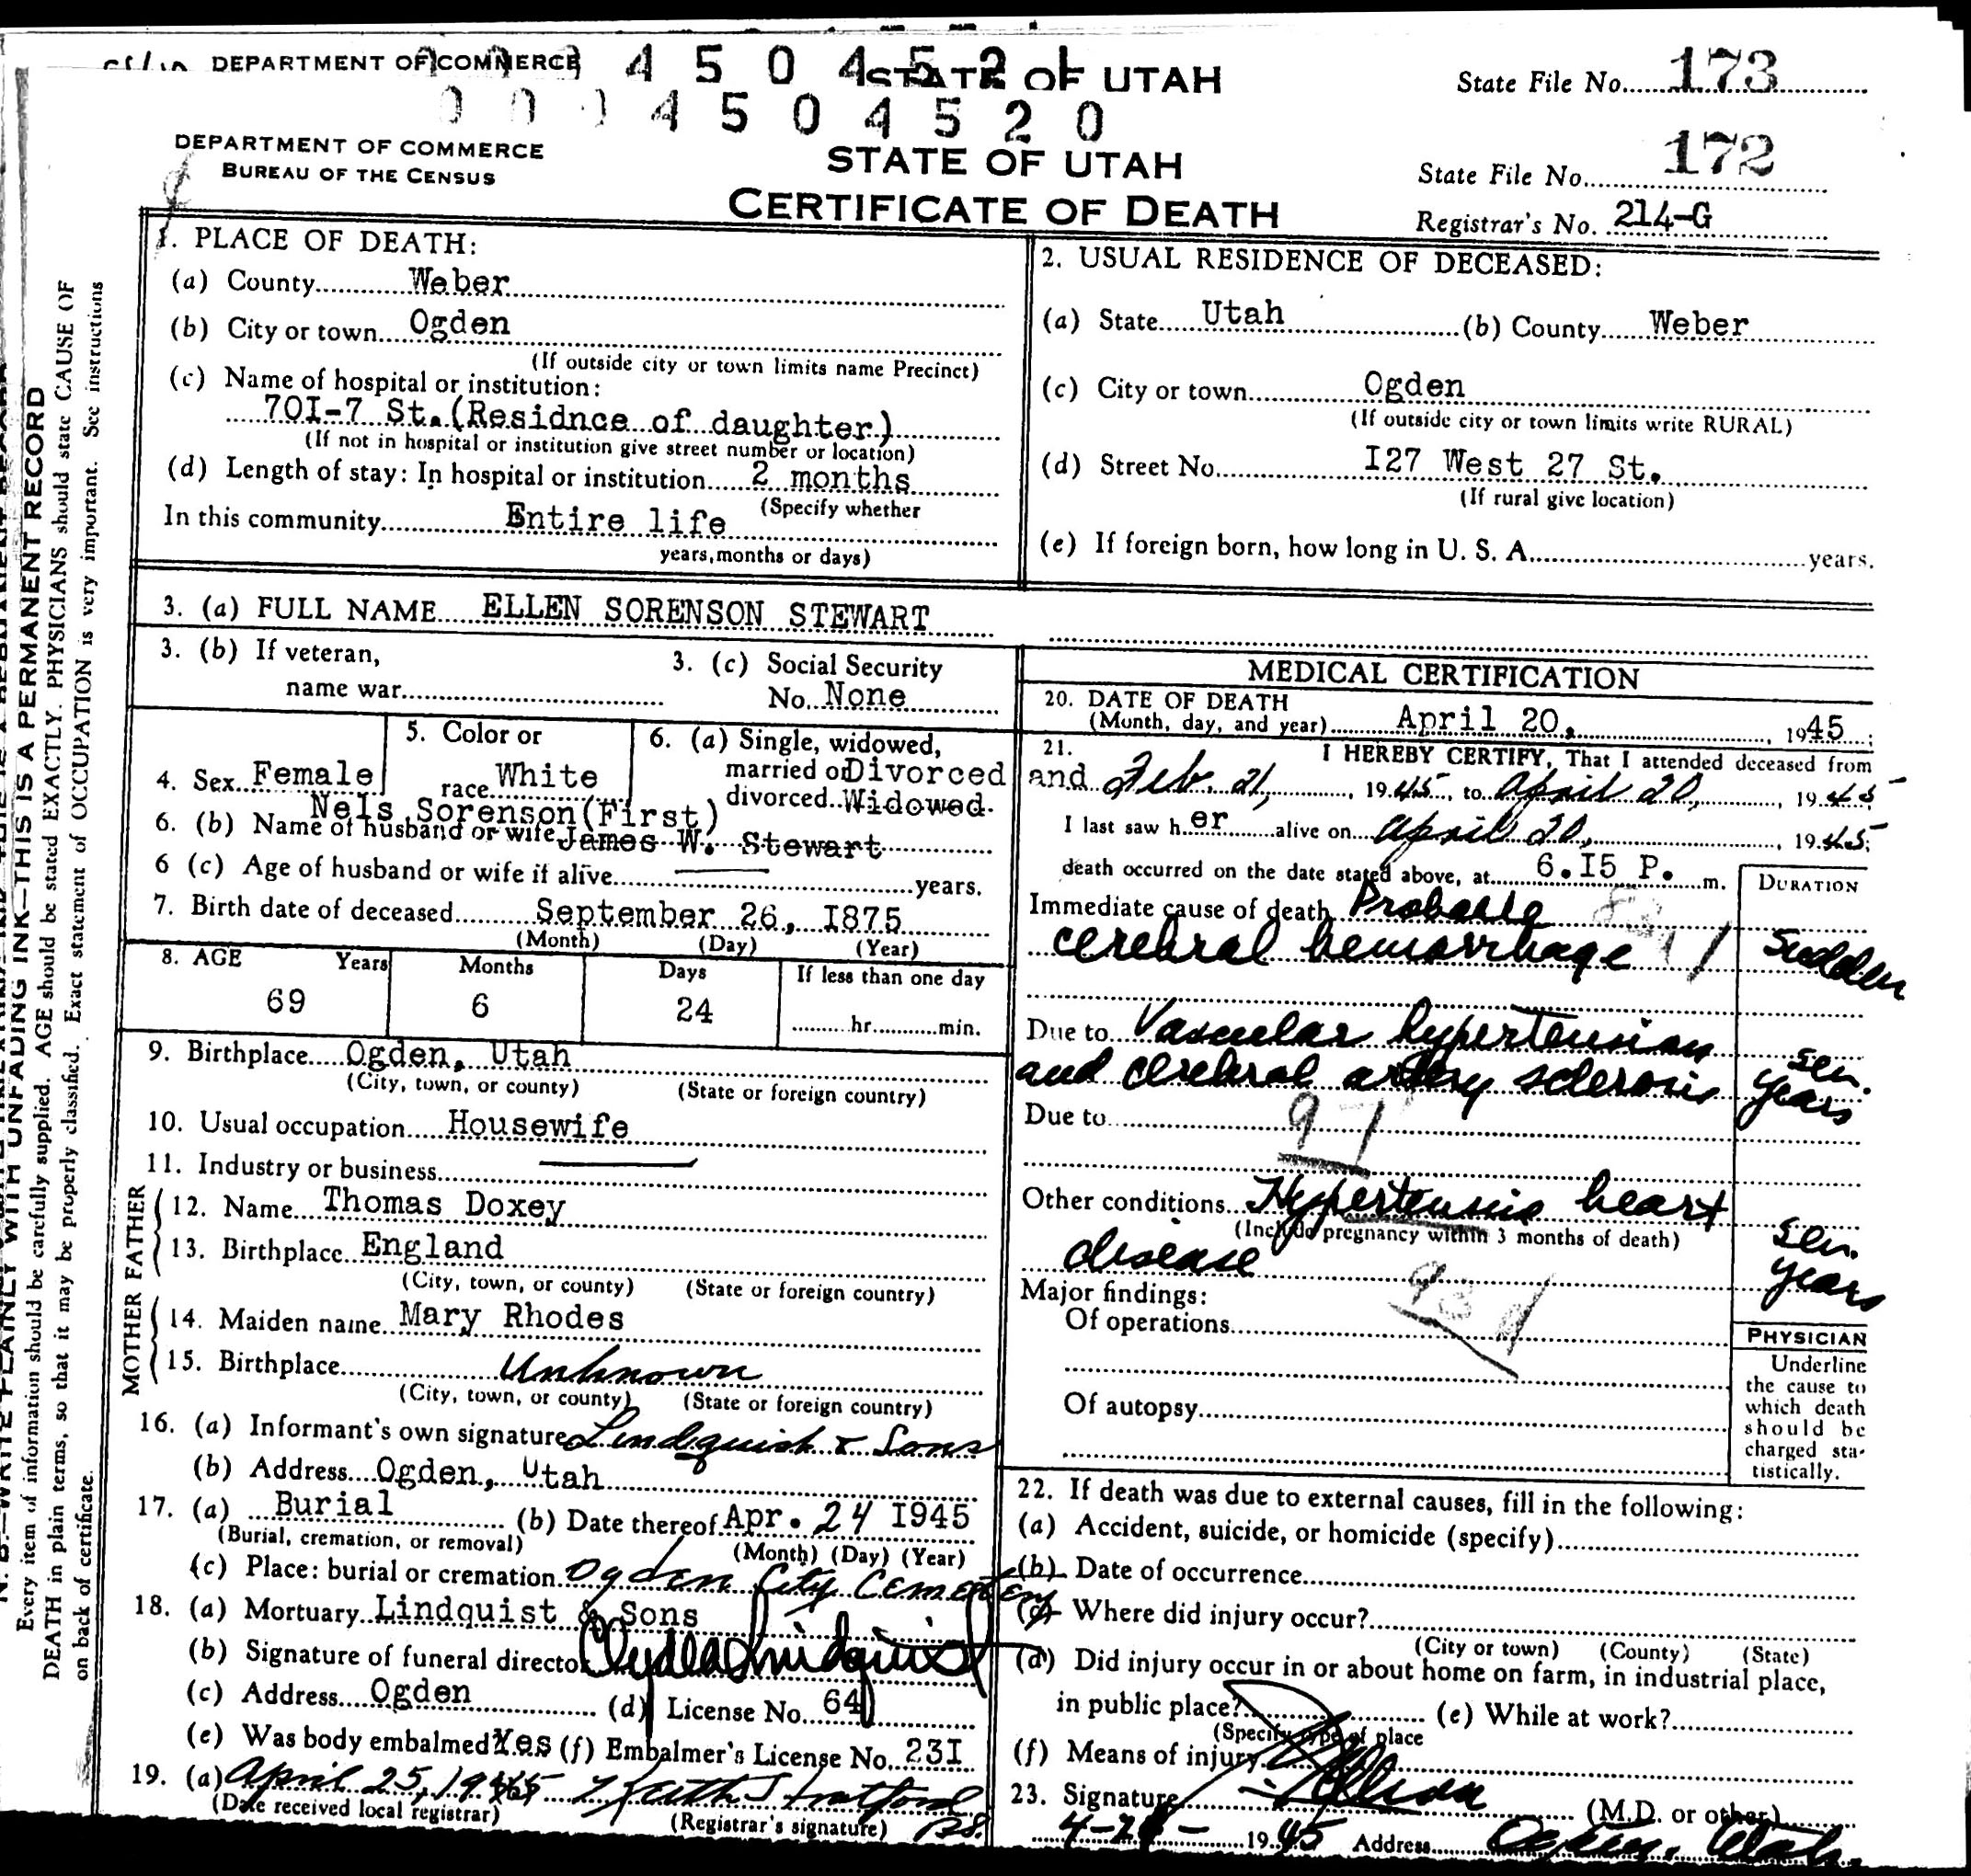 DEPARTMENT OF COMMERCE 4 5 0 4 5 2 1 STATE OF UTAH State File No. 173
0 0 0 4 5 0 4 5 2 0
DEPARTMENT OF COMMERCE STATE OF UTAH State File No. 172
BUREAU OF THE CENSUS
CERTIFICATE OF DEATH Registrar's No. 214-G
1. PLACE OF DEATH:
(a) County Weber
(b) City or town Ogden
(If outside city or town limits name Precinct)
(c) Name of hospital or institution:
70I-7 St. (Residnce of daughter)
(If not in hospital or institution give street number or location)
(d) Length of stay: In hospital or institution 2 months
(Specify whether
In this community Entire life
years, months or days)
2. USUAL RESIDENCE OF DECEASED:
(a) State Utah (b) County Weber
(c) City or town Ogden
(If outside city or town limits write RURAL)
(d) Street No. I27 West 27 St.
(If rural give location)
(e) If foreign born, how long in U. S. A. years.
3. (a) FULL NAME ELLEN SORENSON STEWART
3. (b) If veteran,
name war
3. (c) Social Security
No. None
4. Sex Female
5. Color or
race White
6. (a) Single, widowed,
married or Divorced
divorced Widowed.
Nels Sorenson (First)
6. (b) Name of husband or wife James W. Stewart
6 (c) Age of husband or wife if alive years.
7. Birth date of deceased September 26, I875
(Month) (Day) (Year)
8. AGE Years Months Days If less than one day
69 6 24 hr. min.
9. Birthplace Ogden, Utah
(City, town, or county) (State or foreign country)
10. Usual occupation Housewife
11. Industry or business
FATHER
12. Name Thomas Doxey
13. Birthplace England
(City, town, or county) (State or foreign country)
MOTHER
14. Maiden name Mary Rhodes
15. Birthplace Unknown
(City, town, or county) (State or foreign country)
16. (a) Informant's own signature Lindquist & Sons
(b) Address Ogden, Utah
17. (a) Burial (b) Date thereof Apr. 24 I945
(Burial, cremation, or removal) (Month) (Day) (Year)
(c) Place: burial or cremation Ogden City Cemetery
18. (a) Mortuary Lindquist & Sons
(b) Signature of funeral director Clyde Lindquist
(c) Address Ogden (d) License No. 64
(e) Was body embalmed Yes (f) Embalmer's License No. 23I
19. (a) April 25, 1945 Keith Stratford
(Date received local registrar) (Registrar's signature)
MEDICAL CERTIFICATION
20. DATE OF DEATH
(Month, day, and year) April 20, 1945;
21. I HEREBY CERTIFY, That I attended deceased from
and Feb. 21, 1945, to April 20, 1945
I last saw her alive on April 20, 1945;
death occurred on the date stated above, at 6.I5 P. m.
DURATION
Immediate cause of death Probable
cerebral hemorrhage Sudden
Due to Vascular hypertension
and cerebral artery sclerosis sev. years
Due to
97
Other conditions Hypertensive heart
(Include pregnancy within 3 months of death)
disease sev. years
Major findings:
93d
Of operations
Of autopsy
PHYSICIAN
Underline
the cause to
which death
should be
charged sta-
tistically.
22. If death was due to external causes, fill in the following:
(a) Accident, suicide, or homicide (specify)
(b) Date of occurrence
(c) Where did injury occur?
(City or town) (County) (State)
(d) Did injury occur in or about home on farm, in industrial place,
in public place? (e) While at work?
(Specify type of place
(f) Means of injury
23. Signature (M.D. or other)
1945 Address Ogden, Utah
WRITE PLAINLY WITH UNFADING INK—THIS IS A PERMANENT RECORD
Every item of information should be carefully supplied. AGE should be stated EXACTLY. PHYSICIANS should state CAUSE OF
DEATH in plain terms, so that it may be properly classified. Exact statement of OCCUPATION is very important. See instructions
on back of certificate.